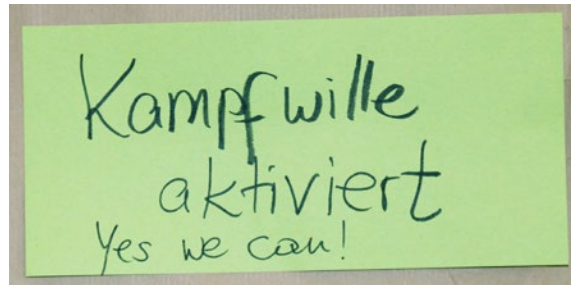 Kampfwille
aktiviert
Yes we can!